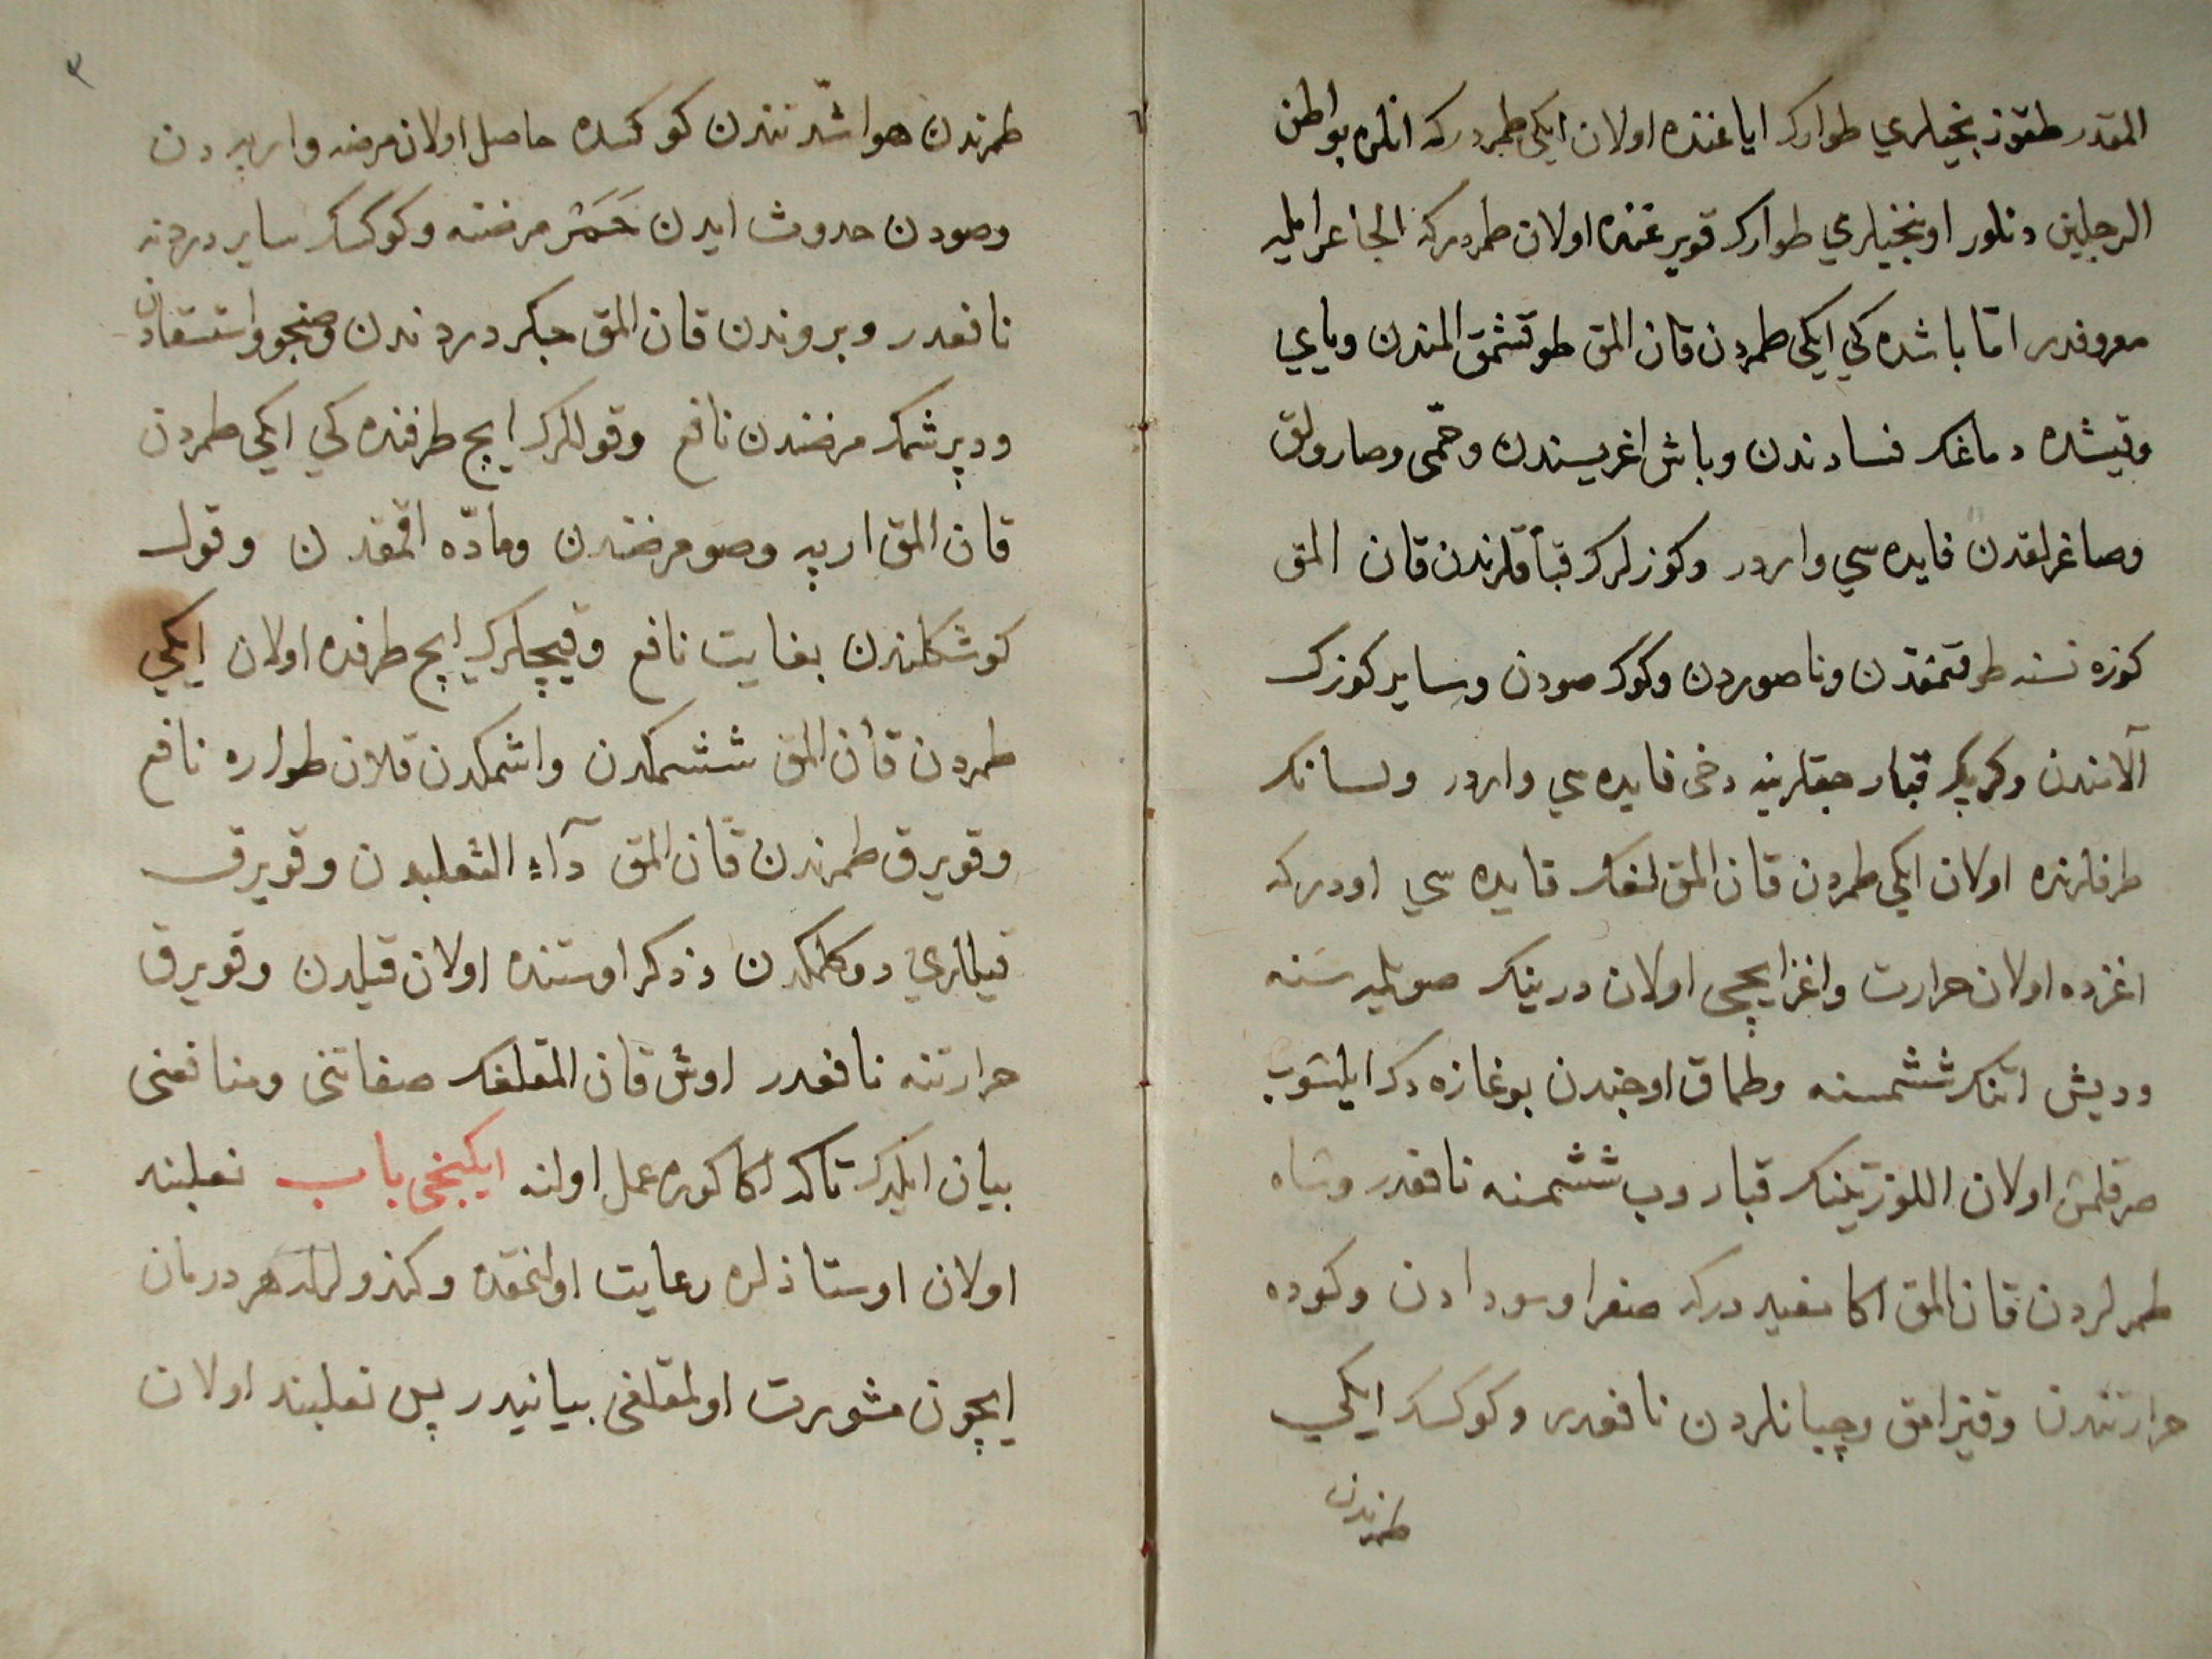 المقدر طقوز نجیلري طوارك ایاغنده اولان ایکی طمردركه انلره بواطن
الرجلین دنلور اوننجیلري طوارك قویرغنده اولان طمردركه الجاعر ایله
معروفدر امّا باشده كي ایکی طمردن قان المق طوتشمق المندن ویاي
وقیشده دماغك فسادندن وباش اغریسندن وحمّی وصارولق
وصاغرلقدن فایده سي واردر وكوزلرك قباقلرندن قان المق
كوزه نسنه طرقنمقدن وناصوردن وكوك صودن وسایر كوزك
آلامندن وكرپك قبارجقلرینه دخی فایده سي واردر ولسانك
طرفلرنده اولان ایکی طمردن قان المق لغك فایده سي اودركه
اغزده اولان حرارت واغز ایچی اولان درینك صویله سنه
ودیش اتنك ششمسنه وطماق اوجندن بوغازه دك ایلشوب
صرقلمش اولان اللوزتینك قباروب ششمنه نافعدر وشاه
طمرلردن قان المق اكا مفید دركه صفرا وسودادن وكوده
حرارتندن وقیزامق وچبانلردن نافعدر وكوكسك ایکي
طمرندن
٣
طمرندن هوا شدّتندن كوكسده حاصل اولان مرضه واریه دن
وصودن حدوث ایدن حَمَر مرضنه وكوكسك سایر دردینه
نافعدر وبروندن قان المق جكر دردندن وصنجو واستسقادن
ودپرشمك مرضندن نافع وقوللرك ایچ طرفنده كي ایکی طمردن
قان المق ارپه وصو مرضندن ومادّه اقمقدن وقول
كوشكلندن بغایت نافع وقیچلرك ایچ طرفده اولان ایکي
طمردن قان المق ششمكدن واشمكدن قلان طواره نافع
وقویرق طمرندن قان المق دآء الثعلبدن وقویرق
قیللري دوكلمكدن وذكر اوستنده اولان قیلدن وقویرق
حرارتنه نافعدر اوش قان المقلغك صفاتنی ومنافعنی
بیان ایلدك تاكه اكا كوره عمل اولنه ایكنجی باب نعلبند
اولان اوستاذلره رعایت اولنمقده وكندولرله هر درمان
ایچون مشورت اولمقلغی بیانیدر پس نعلبند اولان